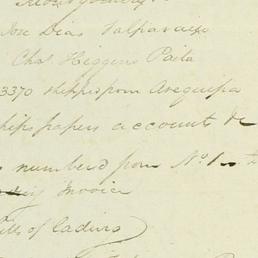 Jose Dias Valparaiso
Chas. Higgins Paita
3370 shippd from Arequipa
ships papers account &c
numberd from No. 1
Invoice
ills of lading